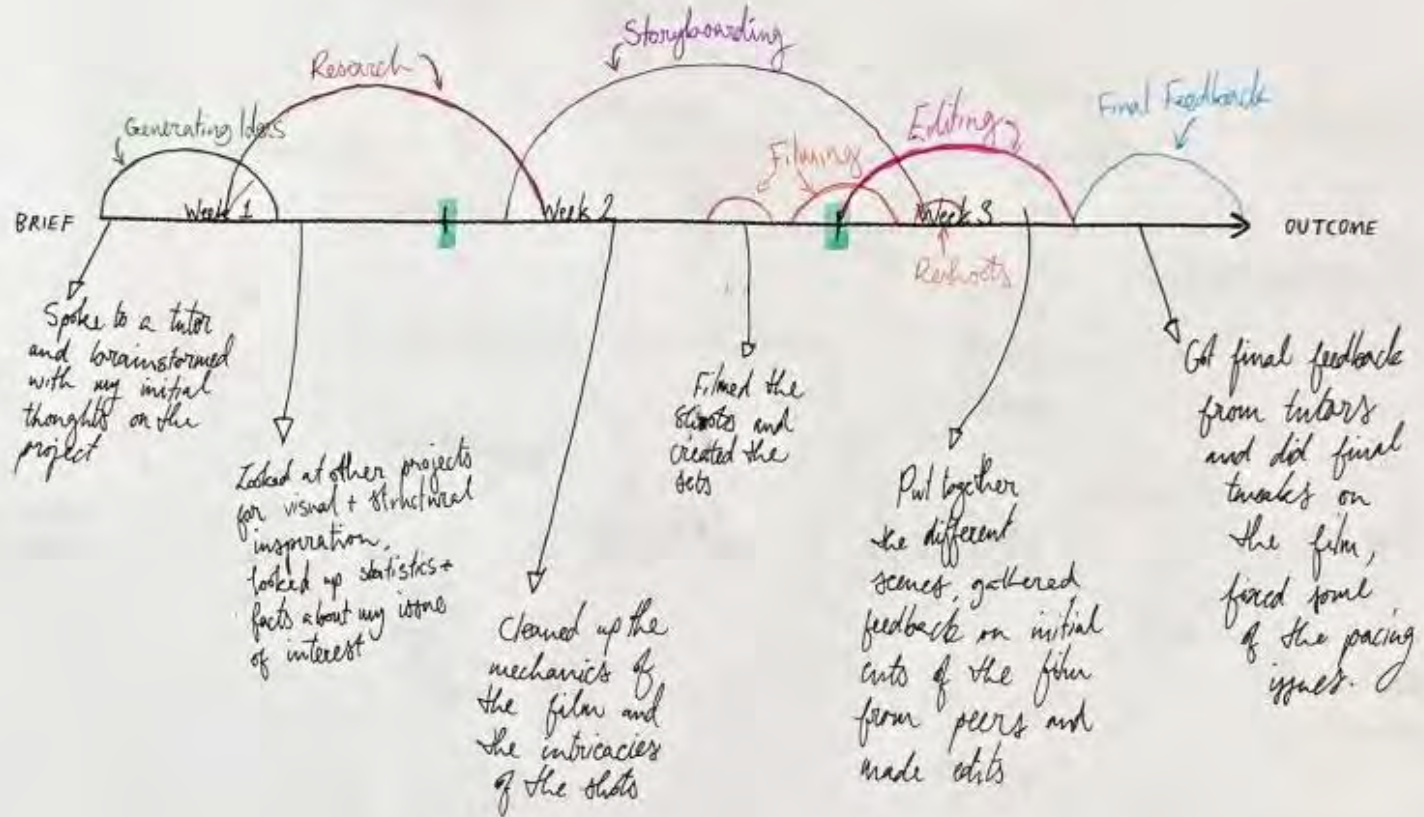 Storyboarding
Research
Final Feedback
Generating Ideas
Editing
Filming
BRIEF
Week 1
Week 2
Week 3
OUTCOME
Reshoots
Spoke to a tutor
and brainstormed
with my initial
thoughts on the
project
Looked at other projects
for visual + structural
inspiration,
looked up statistics +
facts about my issue
of interest
Cleaned up the
mechanics of
the film and
the intricacies
of the shots
Filmed the
shoots and
created the
sets
Put together
the different
scenes, gathered
feedback on initial
cuts of the film
from peers and
made edits
Got final feedback
from tutors
and did final
tweaks on
the film,
fixed some
of the pacing
issues.